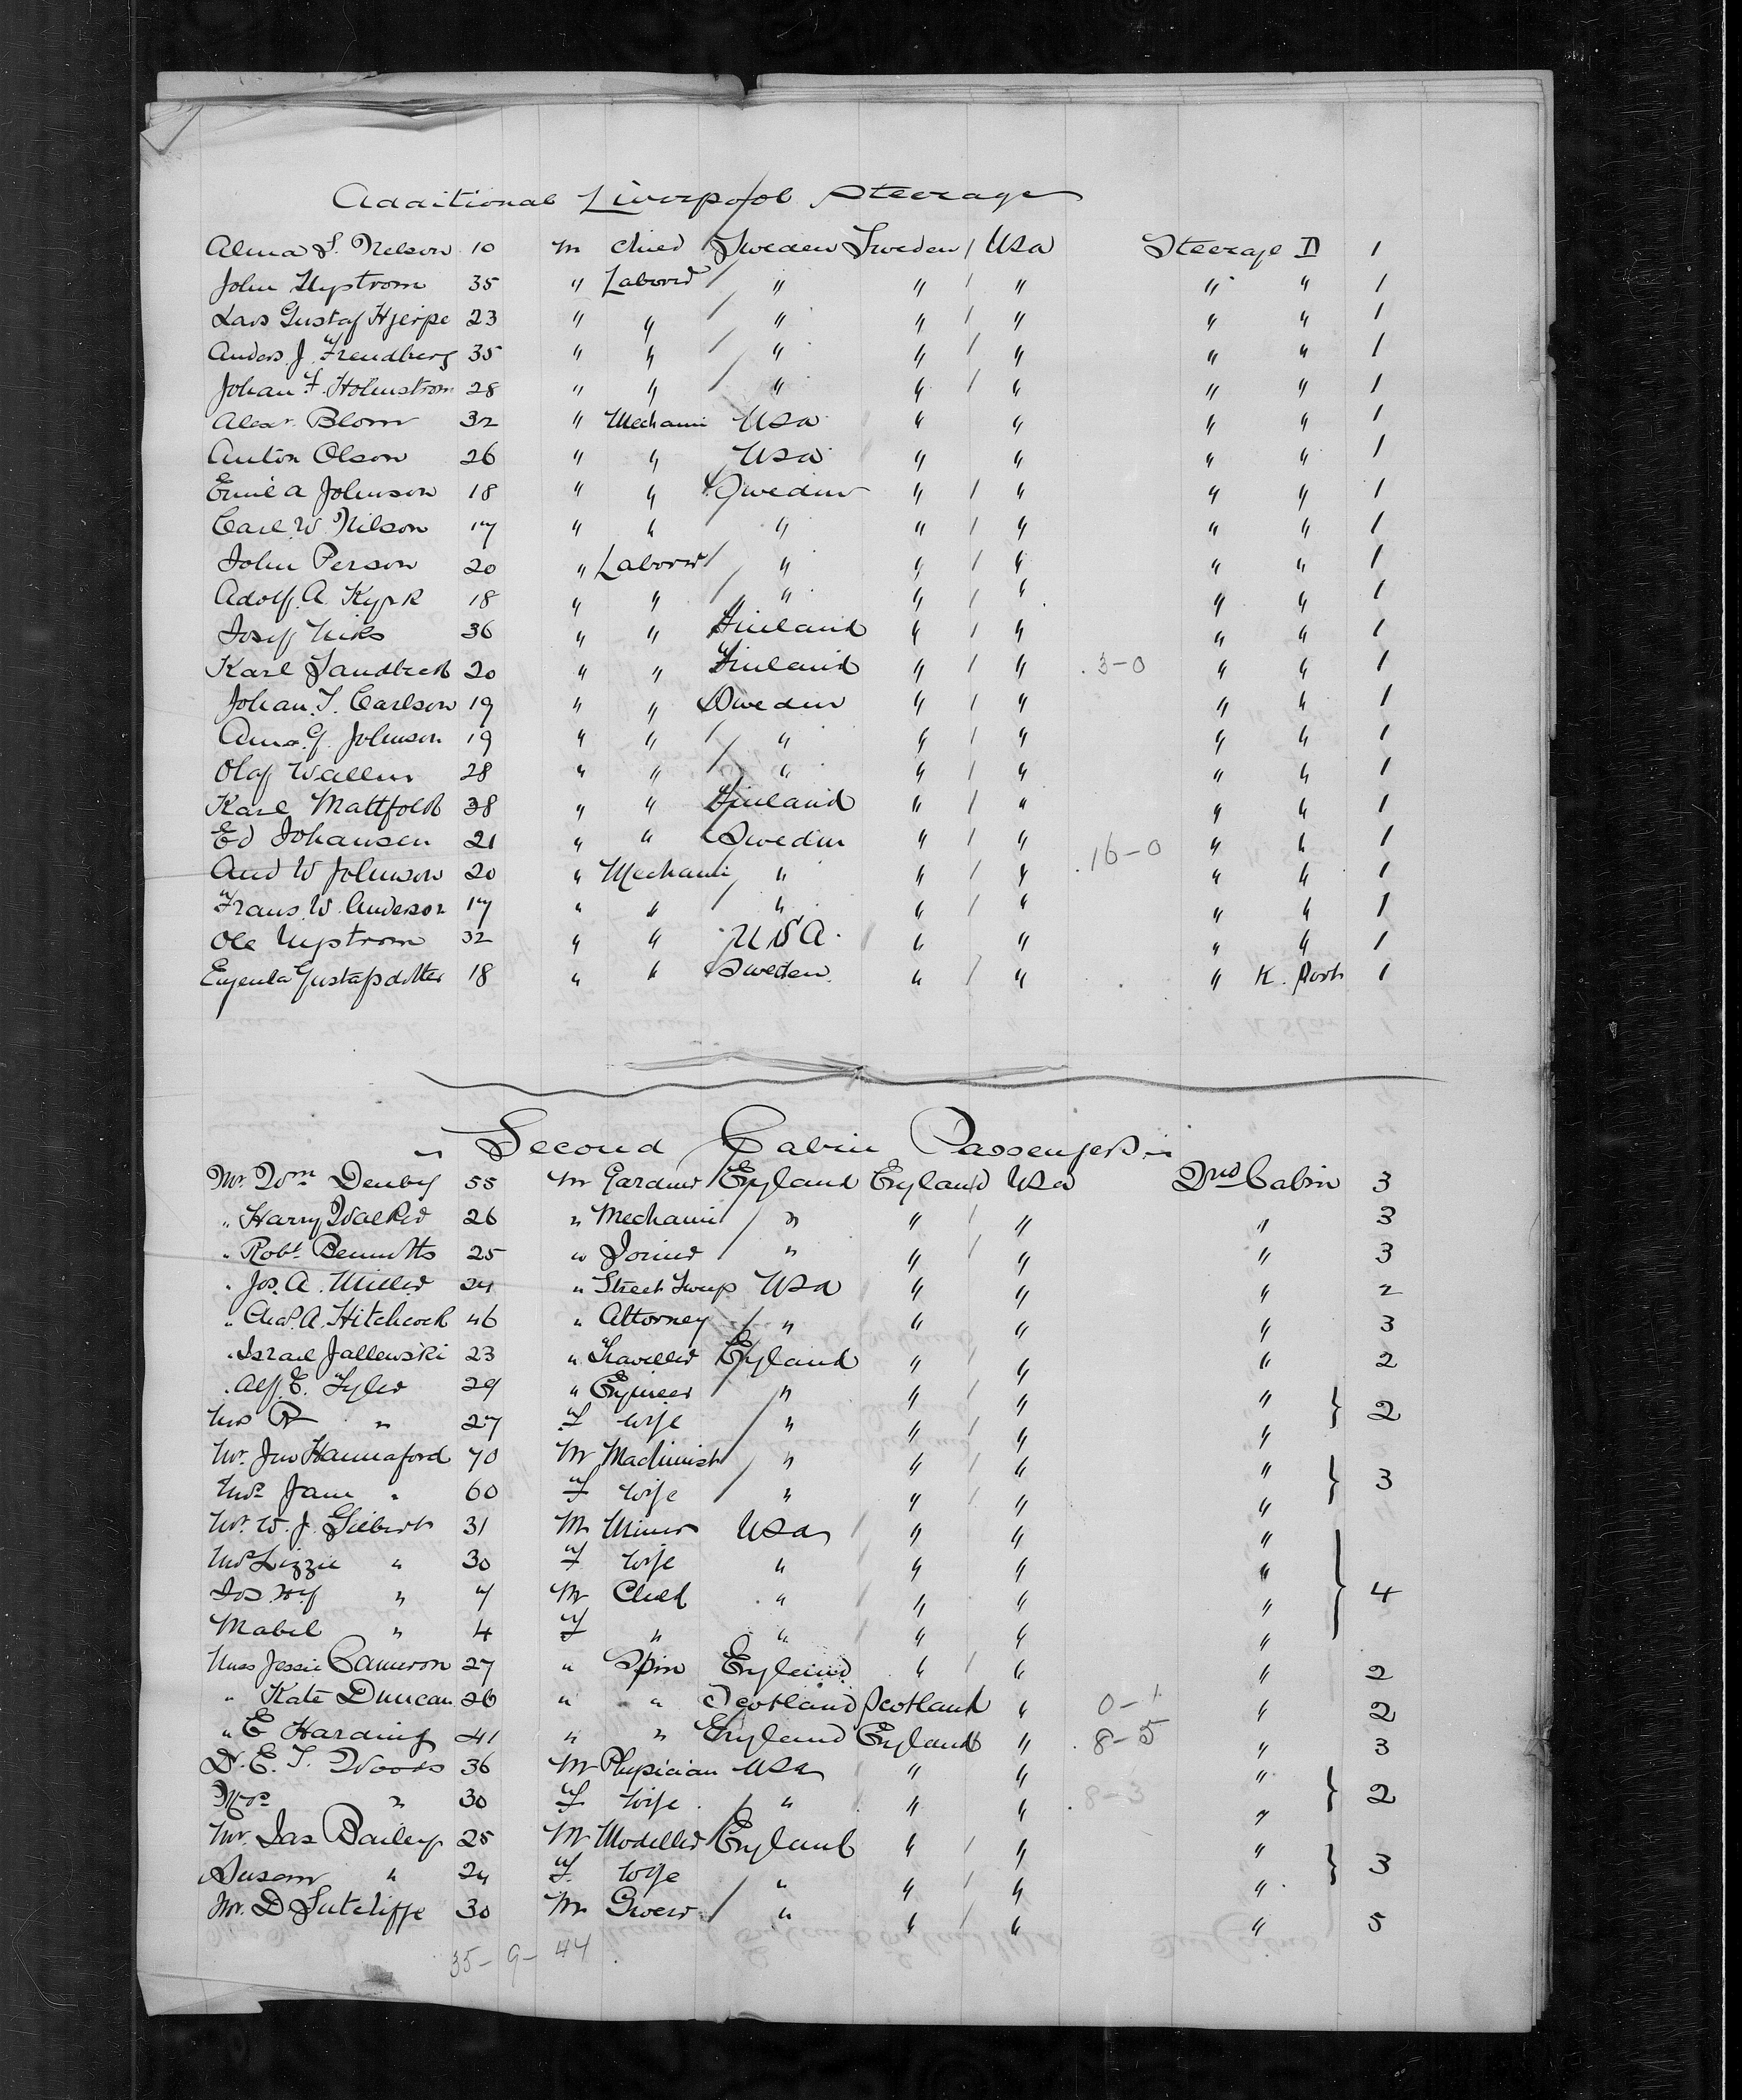 Additional Liverpool Steerage
Alma S. Nelson 10 m Child Sweden Sweden / USa Steerage D 1
John Nystrom 35 " Laborer / " " / " " " 1
Lars Gustaf Hjerpe 23 " " / " " / " " " 1
Anders J. Frendberg 35 " " / " " / " " " 1
Johan F. Holmstrom 28 " " / " " / " " " 1
Alexr. Blom 32 " Mechani USa " " " " 1
Anton Olson 26 " " USa " " " " 1
Emil A Johnson 18 " " Sweden " / " " " 1
Carl W Nilson 17 " " " " / " " " 1
John Person 20 " Laborer / " " / " " " 1
Adolf. A. Kyrk 18 " " / " " / " " " 1
Josef 36 " " Finland " / " " " 1
Karl Sandback 20 " " Finland " / " 3-0 " " 1
Johan. T. Carlson 19 " " Sweden " / " " " 1
G. Johnson 19 " " / " " / " " " 1
Olaf Wallin 28 " " / " " / " " " 1
Karl Mattfolk 38 " " Finland " / " " " 1
Ed Johansen 21 " " Sweden " / " 16-0 " " 1
And W Johnson 20 " Mechani / " " / " " " 1
Frans. W. Anderson 17 " " / " " / " " " 1
Ole Nystrom 32 " " USA. " " " " 1
Eugenia Gustafsdotter 18 " " Sweden " / " " K. Port 1
" Second Cabin Passengers "
Mr. Wm Denby 55 m Gardner England England USa 2nd Cabin 3
" Harry Walker 26 " Mechani / " " / " " 3
" Robt. Bennetts 25 " Joiner / " " / " " 3
" Jos. A. Miller 24 " Street Sweep USa " " " 2
" Chas. A. Hitchcock 46 " Attorney / " " " " 3
" Israel Jallewski 23 " Traveller England " / " " 2
" Alf. E. Tyler 29 " Engineer / " " / " " } 2
Mrs R " 27 F wife / " " / " "
Mr. Jno Hannaford 70 M Machinist / " " / " " } 3
Mrs Jane " 60 F wife / " " / " "
Mr. W. J. Gilbert 31 M Miner USa " " " } 4
Mrs Lizzie " 30 F wife " " " "
Jos. Wy " 7 M Child " " " "
Mabel " 4 F " " " " "
Miss Jessie Cameron 27 " Spin England " / " " 2
" Kate Duncan 26 " " Scotland Scotland " 0-1 " 2
" E Harding 41 " " England England " 8-5 " 3
Dr. E. T. Woods 36 M Physician USa " " " } 2
Mrs " 30 F wife / " " " 8-3 "
Mr. Jas Bailey 25 M Modeller England " / " " } 3
Susan " 24 F. wife / " " / " "
Mr. D Sutcliffe 30 M Grocer / " " / " " 5
35- 9- 44